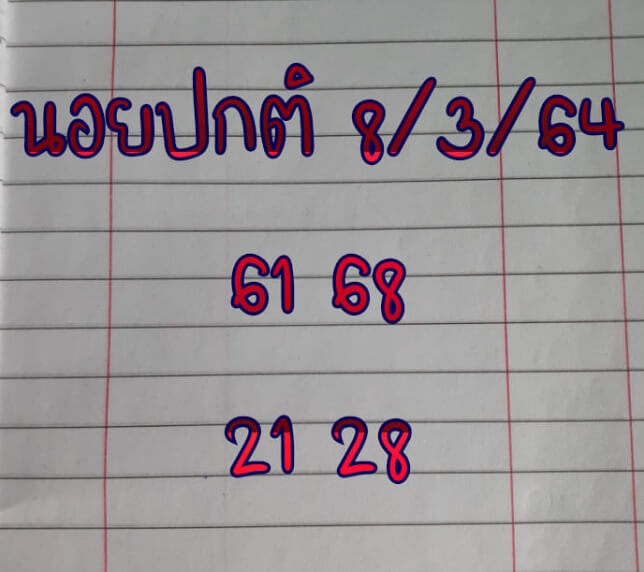 นอยปกติ 8/3/64
61 68
21 28